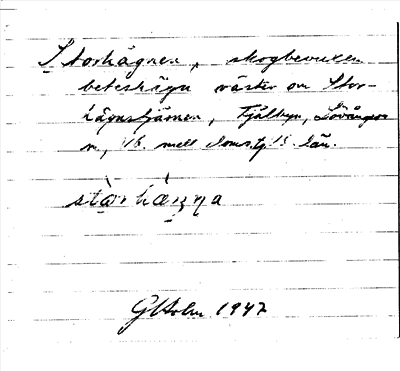 Storhägnen, skogbevuxen
beteshägn väster om Stor-
hägnstjärnen, Fjälbyn, Lövångers
sn, Vb. mell. doms. tg. Vb. län.
stɷ̀rhǽŋna
G Holm 1947